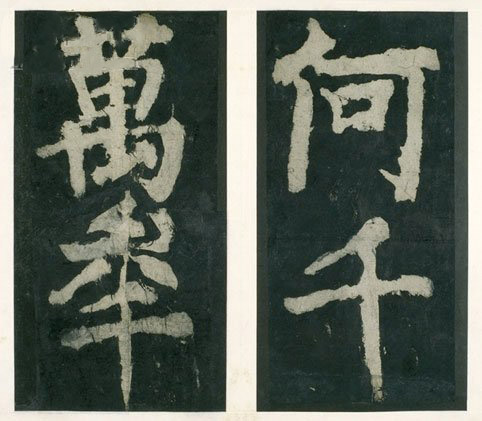 何千
萬年